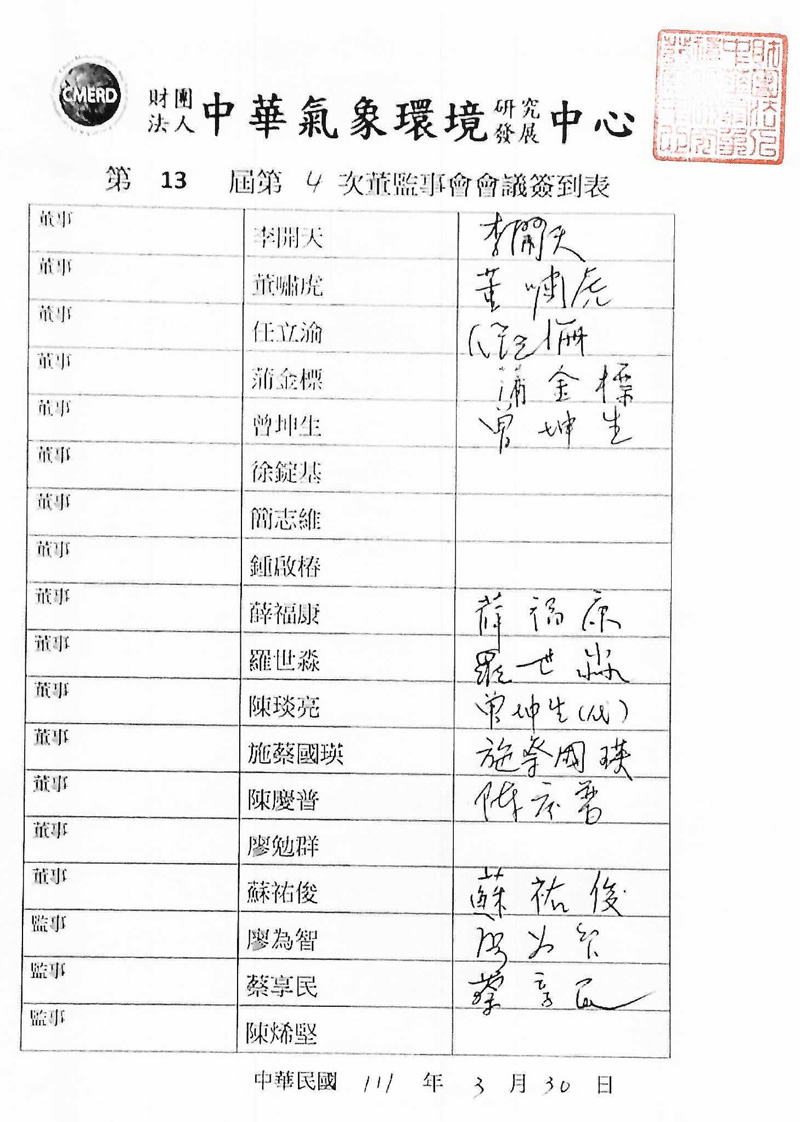 CMERD
財團法人 中華氣象環境 研究發展 中心
第 13 屆第 4 次董監事會會議簽到表
董事 李開天 李開天
董事 董嘯虎 董嘯虎
董事 任立渝
董事 蒲金標 蒲金標
董事 曾坤生 曾坤生
董事 徐錠基
董事 簡志維
董事 鍾啟椿
董事 薛福康 薛福康
董事 羅世淼 羅世淼
董事 陳琰亮 曾坤生(代)
董事 施蔡國瑛 施蔡國瑛
董事 陳慶普 陳慶普
董事 廖勉群
董事 蘇祐俊 蘇祐俊
監事 廖為智 廖为智
監事 蔡享民 蔡享民
監事 陳烯堅
中華民國 111 年 3 月 30 日